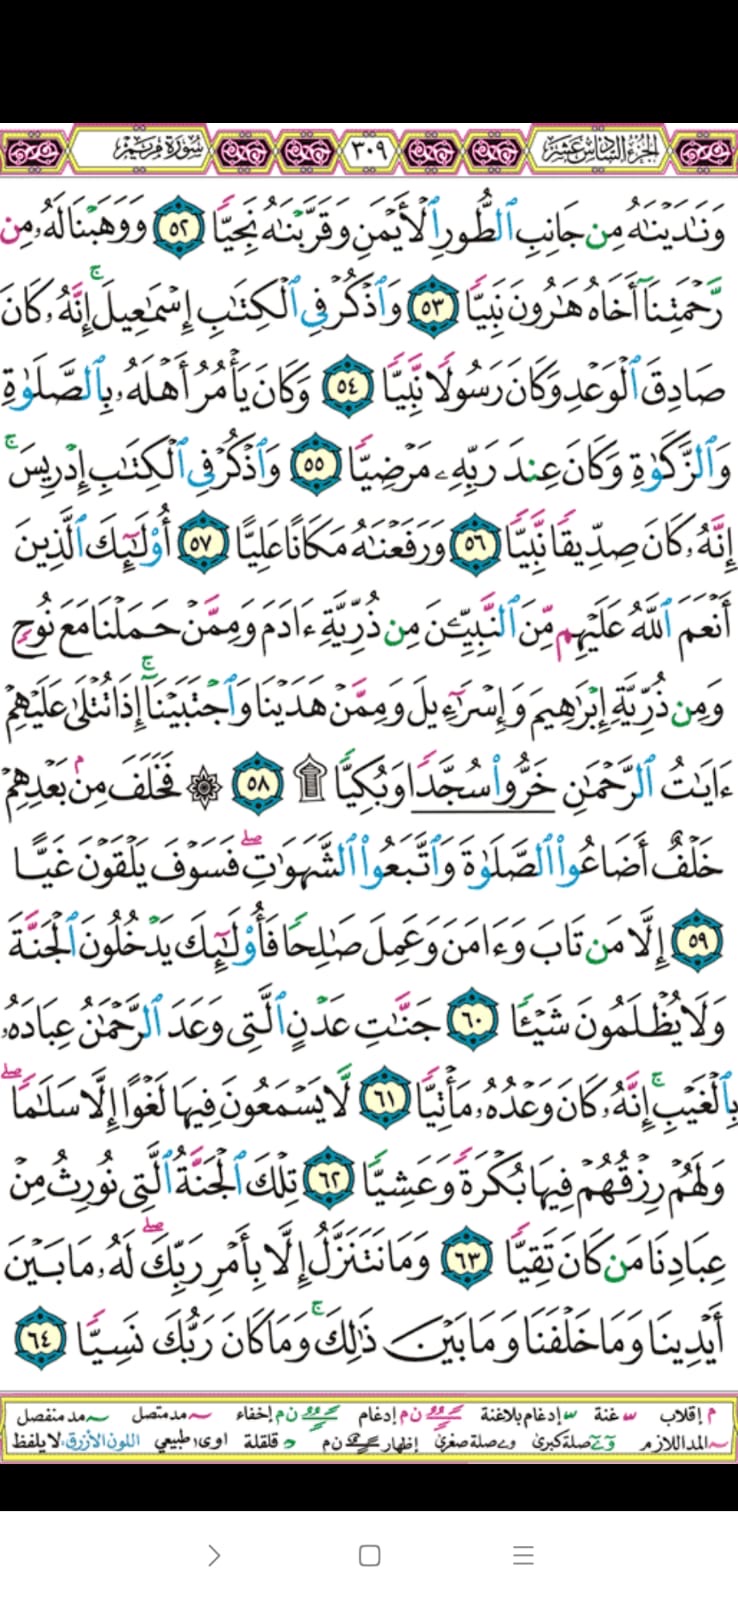 الجزء السادس عشر ٣٠٩ سورة مريم
وَنَٰدَيۡنَٰهُ مِن جَانِبِ ٱلطُّورِ ٱلۡأَيۡمَنِ وَقَرَّبۡنَٰهُ نَجِيّٗا ٥٢ وَوَهَبۡنَا لَهُۥ مِن
رَّحۡمَتِنَآ أَخَاهُ هَٰرُونَ نَبِيّٗا ٥٣ وَٱذۡكُرۡ فِي ٱلۡكِتَٰبِ إِسۡمَٰعِيلَۚ إِنَّهُۥ كَانَ
صَادِقَ ٱلۡوَعۡدِ وَكَانَ رَسُولٗا نَّبِيّٗا ٥٤ وَكَانَ يَأۡمُرُ أَهۡلَهُۥ بِٱلصَّلَوٰةِ
وَٱلزَّكَوٰةِ وَكَانَ عِندَ رَبِّهِۦ مَرۡضِيّٗا ٥٥ وَٱذۡكُرۡ فِي ٱلۡكِتَٰبِ إِدۡرِيسَۚ
إِنَّهُۥ كَانَ صِدِّيقٗا نَّبِيّٗا ٥٦ وَرَفَعۡنَٰهُ مَكَانًا عَلِيًّا ٥٧ أُوْلَٰٓئِكَ ٱلَّذِينَ
أَنۡعَمَ ٱللَّهُ عَلَيۡهِم مِّنَ ٱلنَّبِيِّـۧنَ مِن ذُرِّيَّةِ ءَادَمَ وَمِمَّنۡ حَمَلۡنَا مَعَ نُوحٖ
وَمِن ذُرِّيَّةِ إِبۡرَٰهِيمَ وَإِسۡرَٰٓءِيلَ وَمِمَّنۡ هَدَيۡنَا وَٱجۡتَبَيۡنَآۚ إِذَا تُتۡلَىٰ عَلَيۡهِمۡ
ءَايَٰتُ ٱلرَّحۡمَٰنِ خَرُّواْ سُجَّدٗا وَبُكِيّٗا ۩ ٥٨ ۞ فَخَلَفَ مِنۢ بَعۡدِهِمۡ
خَلۡفٌ أَضَاعُواْ ٱلصَّلَوٰةَ وَٱتَّبَعُواْ ٱلشَّهَوَٰتِۖ فَسَوۡفَ يَلۡقَوۡنَ غَيًّا
٥٩ إِلَّا مَن تَابَ وَءَامَنَ وَعَمِلَ صَٰلِحٗا فَأُوْلَٰٓئِكَ يَدۡخُلُونَ ٱلۡجَنَّةَ
وَلَا يُظۡلَمُونَ شَيۡـٔٗا ٦٠ جَنَّٰتِ عَدۡنٍ ٱلَّتِي وَعَدَ ٱلرَّحۡمَٰنُ عِبَادَهُۥ
بِٱلۡغَيۡبِۚ إِنَّهُۥ كَانَ وَعۡدُهُۥ مَأۡتِيّٗا ٦١ لَّا يَسۡمَعُونَ فِيهَا لَغۡوًا إِلَّا سَلَٰمٗاۖ
وَلَهُمۡ رِزۡقُهُمۡ فِيهَا بُكۡرَةٗ وَعَشِيّٗا ٦٢ تِلۡكَ ٱلۡجَنَّةُ ٱلَّتِي نُورِثُ مِنۡ
عِبَادِنَا مَن كَانَ تَقِيّٗا ٦٣ وَمَا نَتَنَزَّلُ إِلَّا بِأَمۡرِ رَبِّكَۖ لَهُۥ مَا بَيۡنَ
أَيۡدِينَا وَمَا خَلۡفَنَا وَمَا بَيۡنَ ذَٰلِكَۚ وَمَا كَانَ رَبُّكَ نَسِيّٗا ٦٤
م إقلاب غنة إدغام بلاغنة ن م إدغام ن م إخفاء مد متصل مد منفصل
المد اللازم صلة كبرى صلة صغرى إظهار ن م قلقلة اوى طبيعي اللون الأزرق لا يلفظ